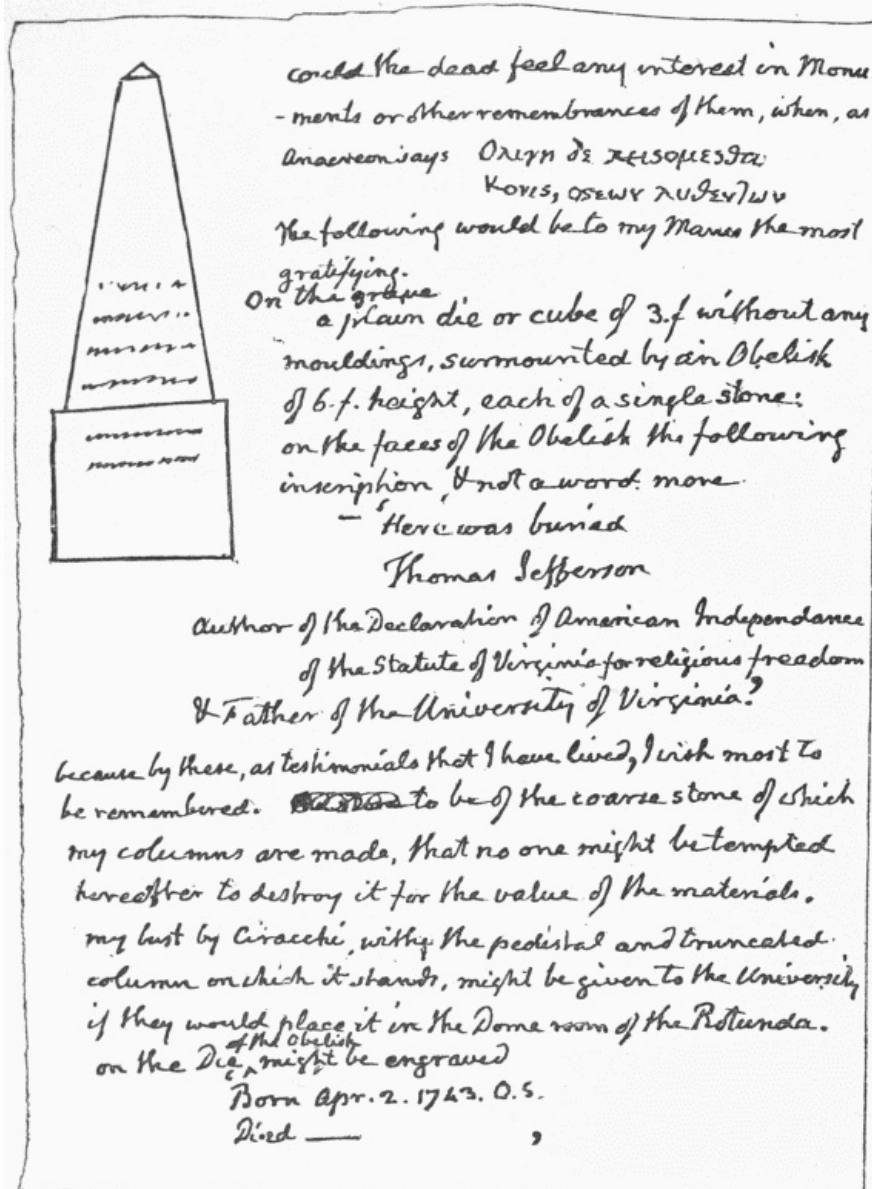 could the dead feel any interest in Monu
-ments or other remembrances of them, when, as
Anacreon says Ολιγη δε κεισομεσθα
Κονις, οσεων λυθεντων
the following would be to my Manes the most
gratifying.
On the grave
a plain die or cube of 3.f without any
mouldings, surmounted by an Obelisk
of 6.f. height, each of a single stone:
on the faces of the Obelisk the following
inscription, & not a word more
— ‘Here was buried
Thomas Jefferson
Author of the Declaration of American Independance
of the Statute of Virginia for religious freedom
& Father of the University of Virginia.’
because by these, as testimonials that I have lived, I wish most to
be remembered. to be of the coarse stone of which
my columns are made, that no one might be tempted
hereafter to destroy it for the value of the materials.
my bust by Ciracchi, with the pedistal and truncated
column on which it stands, might be given to the University
if they would place it in the Dome room of the Rotunda.
on the Die of the Obelisk might be engraved
‘Born Apr. 2. 1743. O.S.
Died —— ’